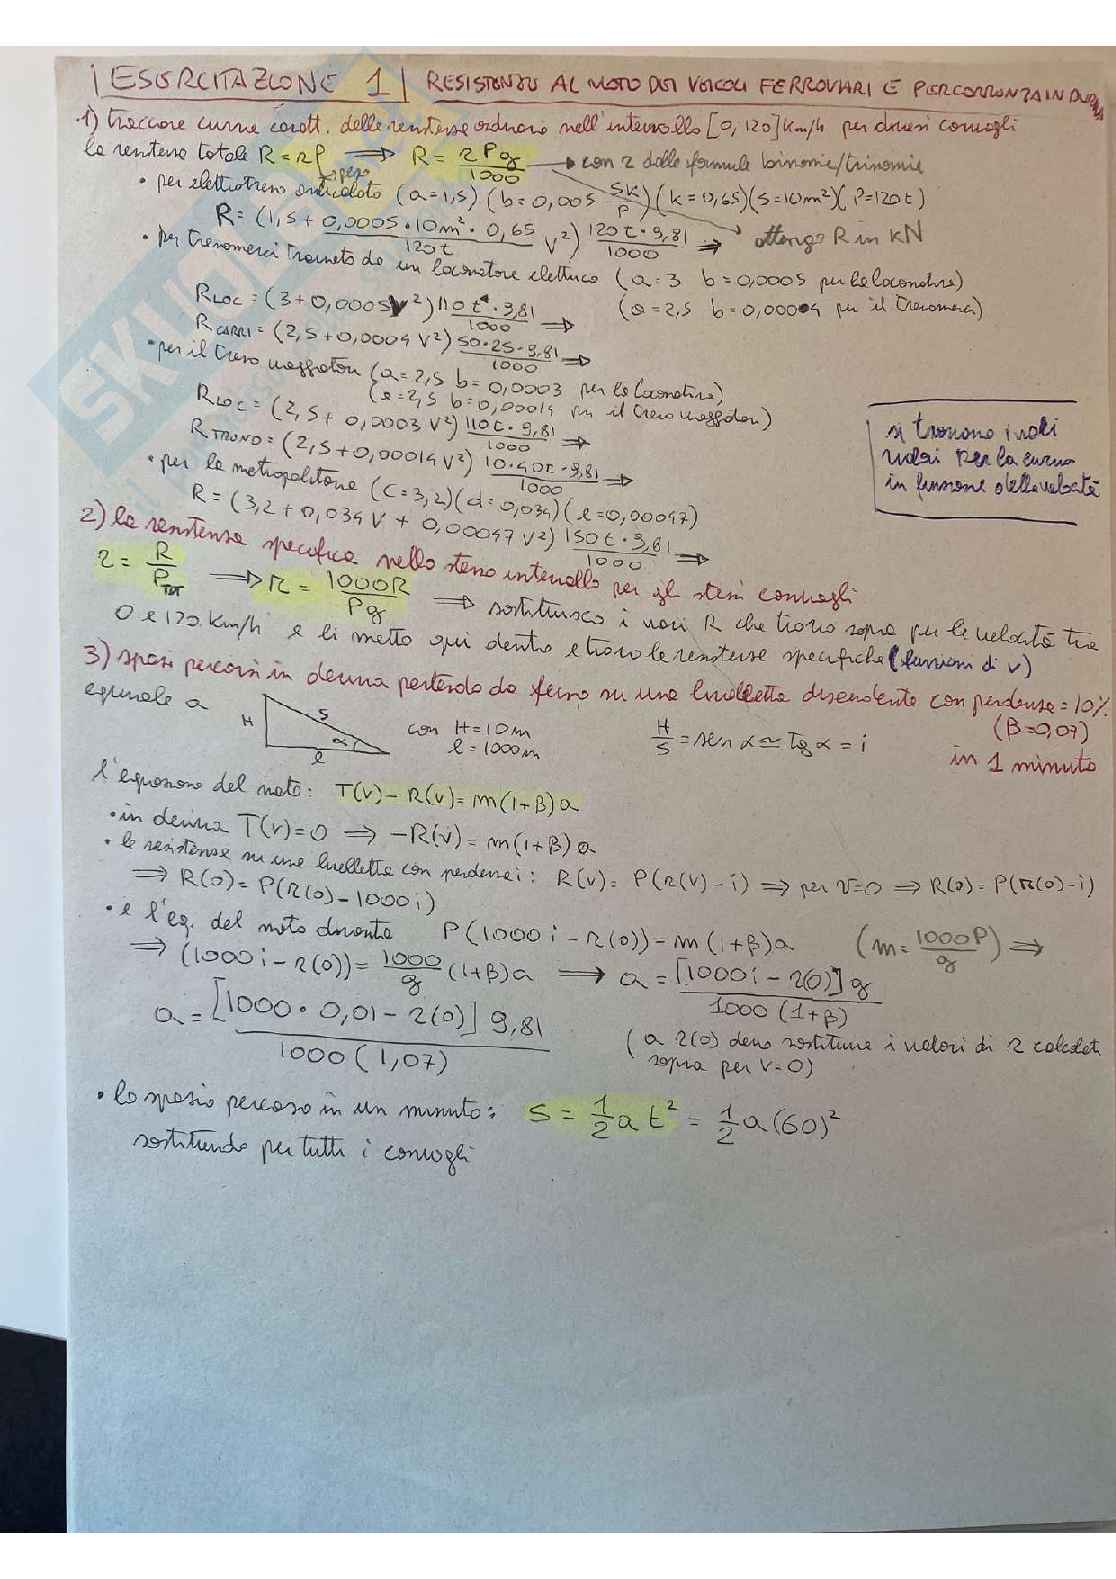 ESERCITAZIONE 1 | RESISTENZE AL MOTO DEI VEICOLI FERROVIARI E PERCORRENZA IN DERIVA
1) tracciare curve caratt. delle resistenze ordinarie nell'intervallo [0, 120] km/h per diversi convogli
la resistenza totale R = rP ⟹ R = rPg/1000 → con r dalle formule binomie/trinomie
peso
• per elettrotreno articolato (a=1,5) (b=0,005 SK/P) (k=0,65)(S=10m²)(P=120t)
R = (1,5 + 0,0005·10m²·0,65/120t V²) 120t·9,81/1000 ⟹ ottengo R in kN
• per treno merci trainato da un locomotore elettrico (a=3 b=0,0005 per la locomotiva)
R LOC = (3+0,0005V²) 110t·9,81/1000 ⟹ (a=2,5 b=0,0004 per il treno merci)
R CARRI = (2,5+0,0004V²) 50·25·9,81/1000 ⟹
• per il treno viaggiatori (a=2,5 b=0,0003 per la locomotiva)
(a=2,5 b=0,00014 per il treno viaggiatori)
R LOC = (2,5+0,0003V²) 110t·9,81/1000 ⟹
R TRENO = (2,5+0,00014V²) 10·40t·9,81/1000 ⟹
• per la metropolitana (c=3,2)(d=0,034)(e=0,00047)
R = (3,2+0,034V+0,00047V²) 150t·9,81/1000 ⟹
si trovano i vari
valori per la curva
in funzione della velocità
2) la resistenza specifica nello stesso intervallo per gli stessi convogli
r = R/P TOT ⟹ r = 1000R/Pg ⟹ sostituisco i vari R che trovo sopra per le velocità tra
0 e 120 km/h e li metto qui dentro e trovo le resistenze specifiche (funzioni di v)
3) spazi percorsi in deriva partendo da fermo su una livelletta discendente con pendenza = 10‰
(β=0,07)
equivale a
H S α l
con H=10m
l=1000m
H/S = sen α ≃ tg α = i
in 1 minuto
l'equazione del moto: T(v)-R(v)=m(1+β)a
• in deriva T(v)=0 ⟹ -R(v)=m(1+β)a
• le resistenze su una livelletta con pendenza i: R(v)=P(r(v)-i) ⟹ per v=0 ⟹ R(0)=P(r(0)-i)
⟹ R(0)=P(r(0)-1000i)
• e l'eq. del moto diventa P(1000i-r(0))=m(1+β)a (m=1000P/g) ⟹
⟹ (1000i-r(0))=1000/g (1+β)a ⟹ a=[1000i-r(0)]g/1000(1+β)
a=[1000·0,01-r(0)]9,81/1000(1,07)
(a r(0) devo sostituire i valori di r calcolati
sopra per v=0)
• lo spazio percorso in un minuto: S=1/2 a t²=1/2 a(60)²
sostituendo per tutti i convogli